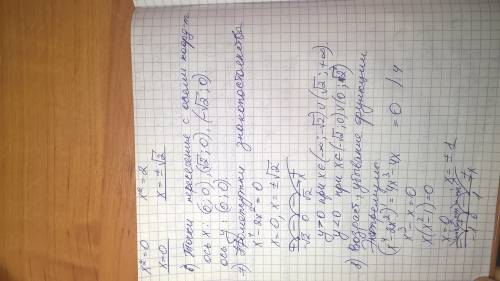 x²=0   x²=2
x=0   x=±√2
6) Точки пересечение с осями коорд.
ось x: (0;0), (√2;0), (-√2;0).
ось y: (0;0).
7) Промежутки знакопостоянства
x⁴-2x²=0
x=0, x=±√2
-√2 0 √2 x
y>0 при x∈(-∞;-√2)∪(√2;+∞)
y<0 при x∈(-√2;0)∪(0;√2)
8) Возраст., убывание функции
экстремумы.
(x⁴-2x²)'=4x³-4x = 0 | :4
x³-x=0
x(x²-1)=0
x=0   x=±1